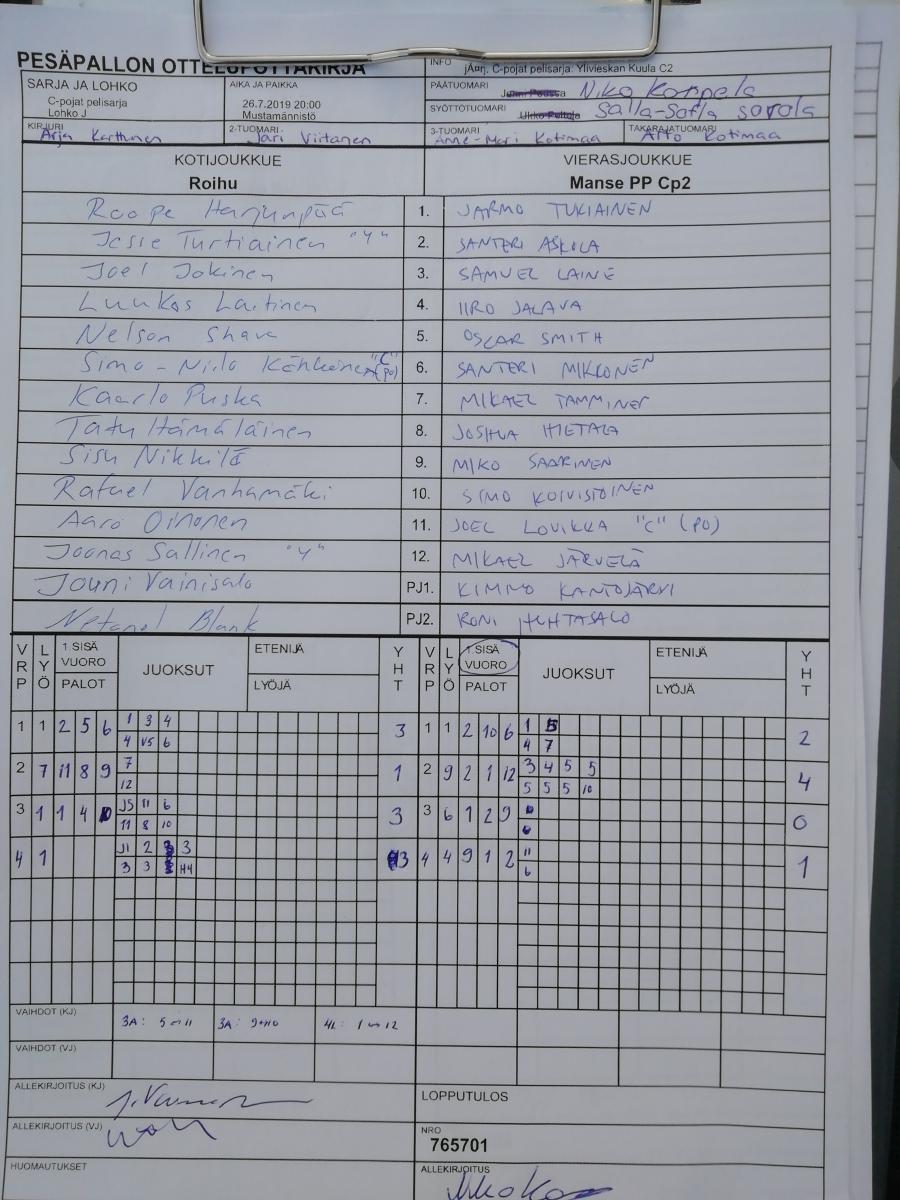 PESÄPALLON OTTELUPÖYTÄKIRJA
INFO jÄrj. C-pojat pelisarja: Ylivieskan Kuula C2
SARJA JA LOHKO
C-pojat pelisarja
Lohko J
AIKA JA PAIKKA
26.7.2019 20:00
Mustamännistö
PÄÄTUOMARI Niko Korpela
SYÖTTÖTUOMARI Salla-Sofia Sorola
KIRJURI Arja Karttunen
2-TUOMARI Jari Viitanen
3-TUOMARI Anne-Mari Kotimaa
TAKARAJATUOMARI Arto Kotimaa
KOTIJOUKKUE VIERASJOUKKUE
Roihu Manse PP Cp2
Roope Harjunpää 1. JARMO TUKIAINEN
Jesse Turtiainen "Y" 2. SANTERI ASKOLA
Joel Jokinen 3. SAMUEL LAINE
Luukas Laitinen 4. IIRO JALAVA
Nelson Shava 5. OSCAR SMITH
Simo-Niilo "C" (PO) 6. SANTERI MIKKONEN
Kaarlo Puska 7. MIKAEL TAMMINEN
Tatu Hämäläinen 8. JOSHUA HIETALA
Sisu Nikkilä 9. MIKO SAARINEN
Rafael Vanhamäki 10. SIMO KOIVISTOINEN
Aaro Oinonen 11. JOEL LOUIKKA "C" (PO)
Joonas Sallinen "Y" 12. MIKAEL JÄRVELÄ
Jouni Vainisalo PJ1. KIMMO KANTOJÄRVI
Netanel Blank PJ2. RONI HUHTASALO
VRP LYÖ 1.SISÄ VUORO PALOT JUOKSUT ETENIJÄ LYÖJÄ YHT VRP LYÖ 1.SISÄ VUORO PALOT JUOKSUT ETENIJÄ LYÖJÄ YHT
1 1 2 5 6 1 3 4 3 1 1 2 10 6 1 5 2
4 V5 6 4 7
2 7 11 8 9 7 1 2 9 2 1 12 3 4 5 5 4
12 5 5 5 10
3 1 1 4 J5 11 6 3 3 6 1 2 9 0
11 8 10
4 1 J1 2 3 3 4 4 9 1 2 11 1
3 3 H4 6
VAIHDOT (KJ) 3A: 5 ↔ 11 3A: 9↔10 4L: 1 ↔ 12
VAIHDOT (VJ)
ALLEKIRJOITUS (KJ)
LOPPUTULOS
ALLEKIRJOITUS (VJ)
NRO
765701
HUOMAUTUKSET
ALLEKIRJOITUS